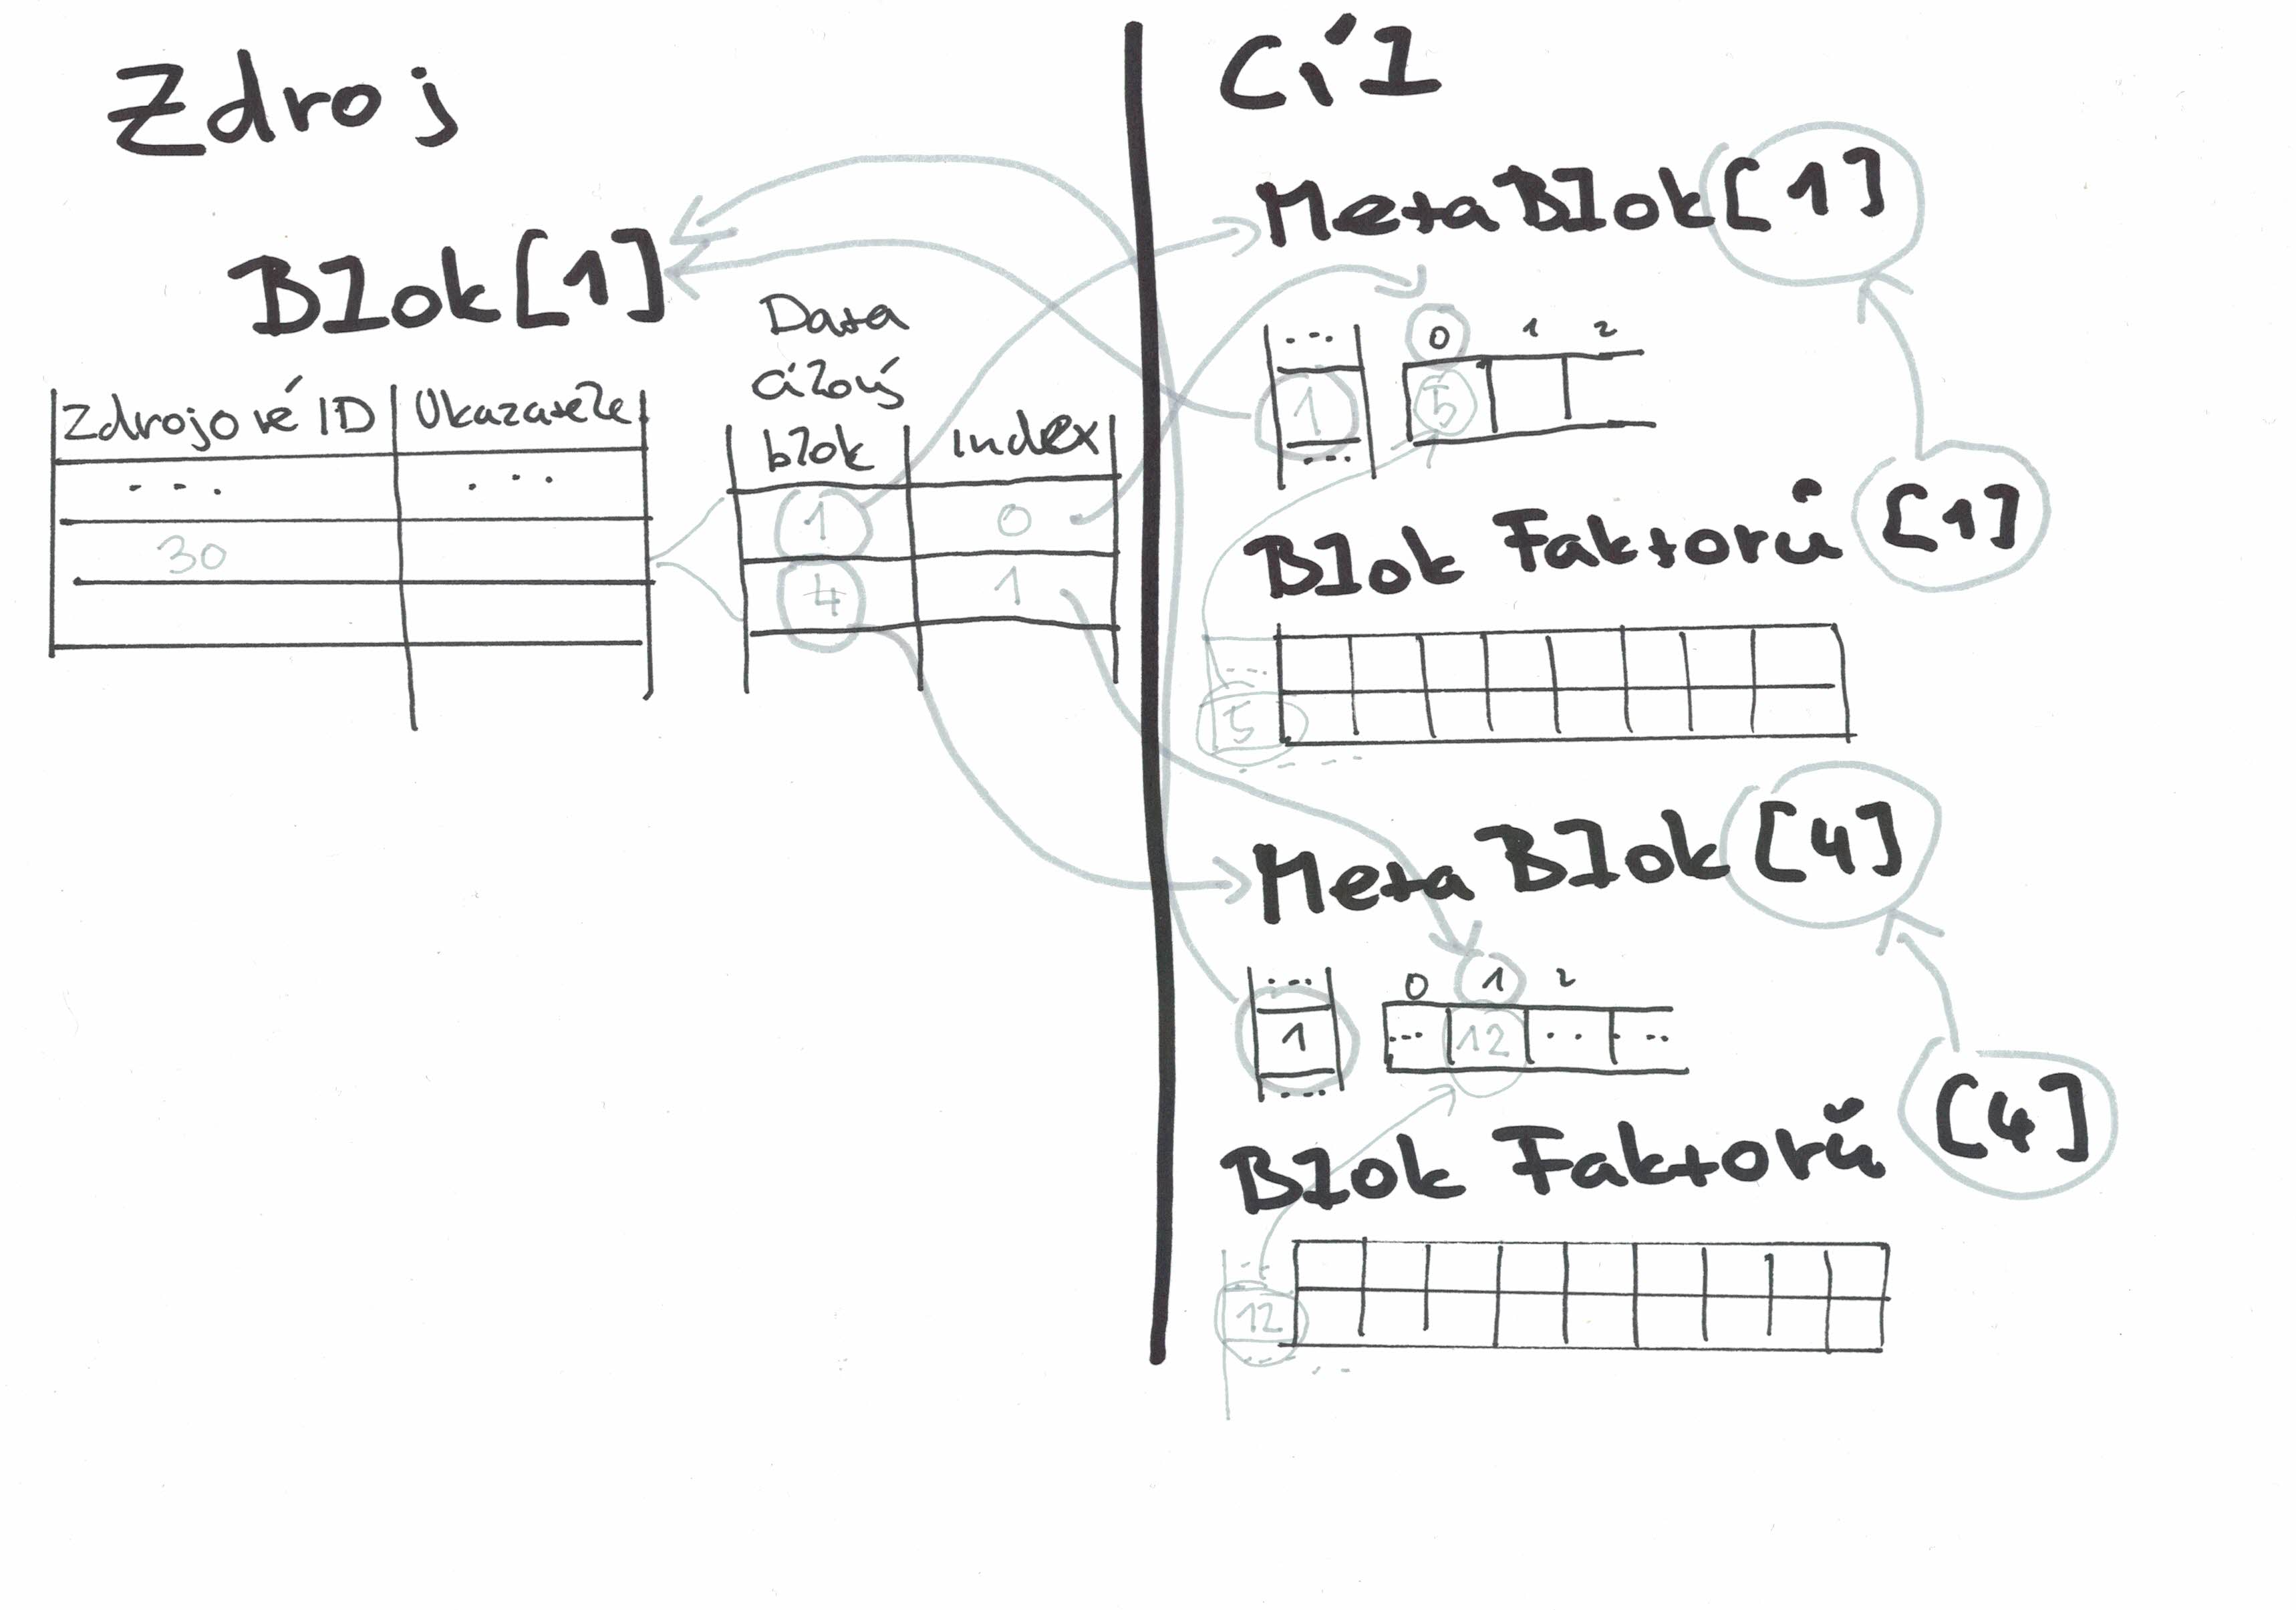 Zdroj
Blok[1]
Zdrojové ID Ukazatele
... ...
30
Data
cílový
blok Index
1 0
4 1
Cíl
MetaBlok[1]
0 1 2
...
1 5
...
Blok Faktorů [1]
...
5
....
Meta Blok [4]
0 1 2
...
1 ... 12 .. ..
....
Blok Faktorů [4]
...
12
...